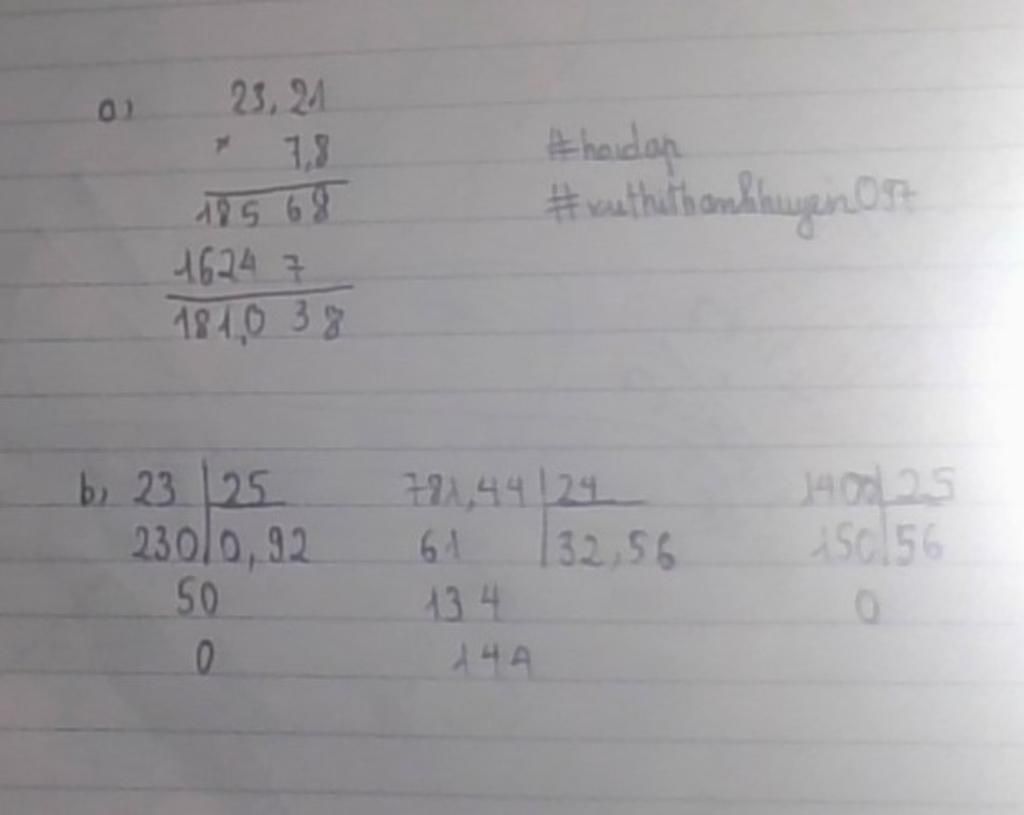 a) 23,21
× 7,8
185 68
1624 7
181,0 38
#hoidap
#vuthithanhhuyen097
b, 23 25
230 0,92
50
0
781,44 24
61 32,56
134
144
1400 25
150 56
0